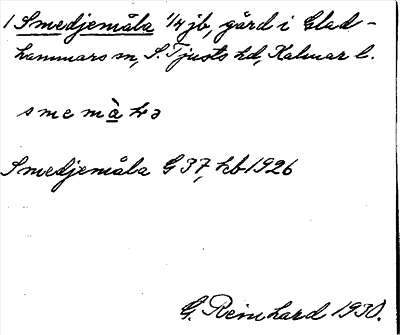 1 Smedjemåla 1/4 jb, gård i Glad-
hammars sn, S. Tjusts hd, Kalmar l.
Smedjemåla G 37, kb 1926
G. Reinhard 1930.